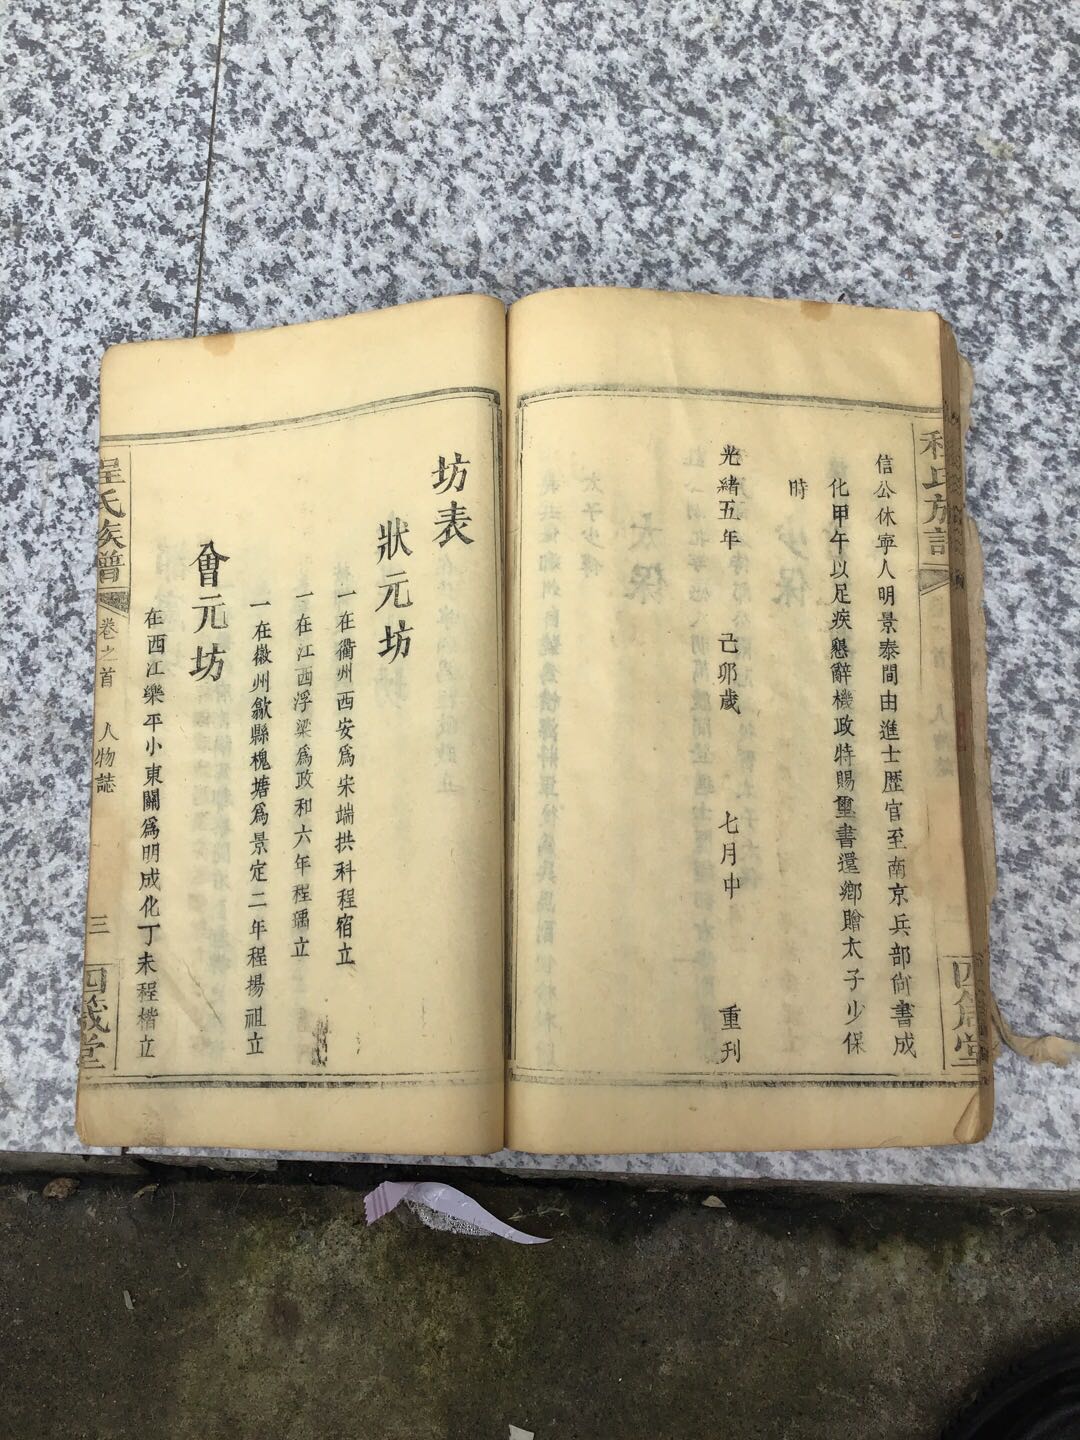 信公休寧人明景泰間由進士歷官至南京兵部尙書成
化甲午以足疾懇辭機政特賜璽書還鄉贈太子少保
時
光緒五年 己卯歲 七月中 重刊
坊表
狀元坊
一在衢州西安爲宋端拱科程宿立
一在江西浮梁爲政和六年程瑀立
一在徽州歙縣槐塘爲景定二年程揚祖立
會元坊
在西江樂平小東關爲明成化丁未程楷立
程氏族譜 卷之首 人物誌 三 四箴堂